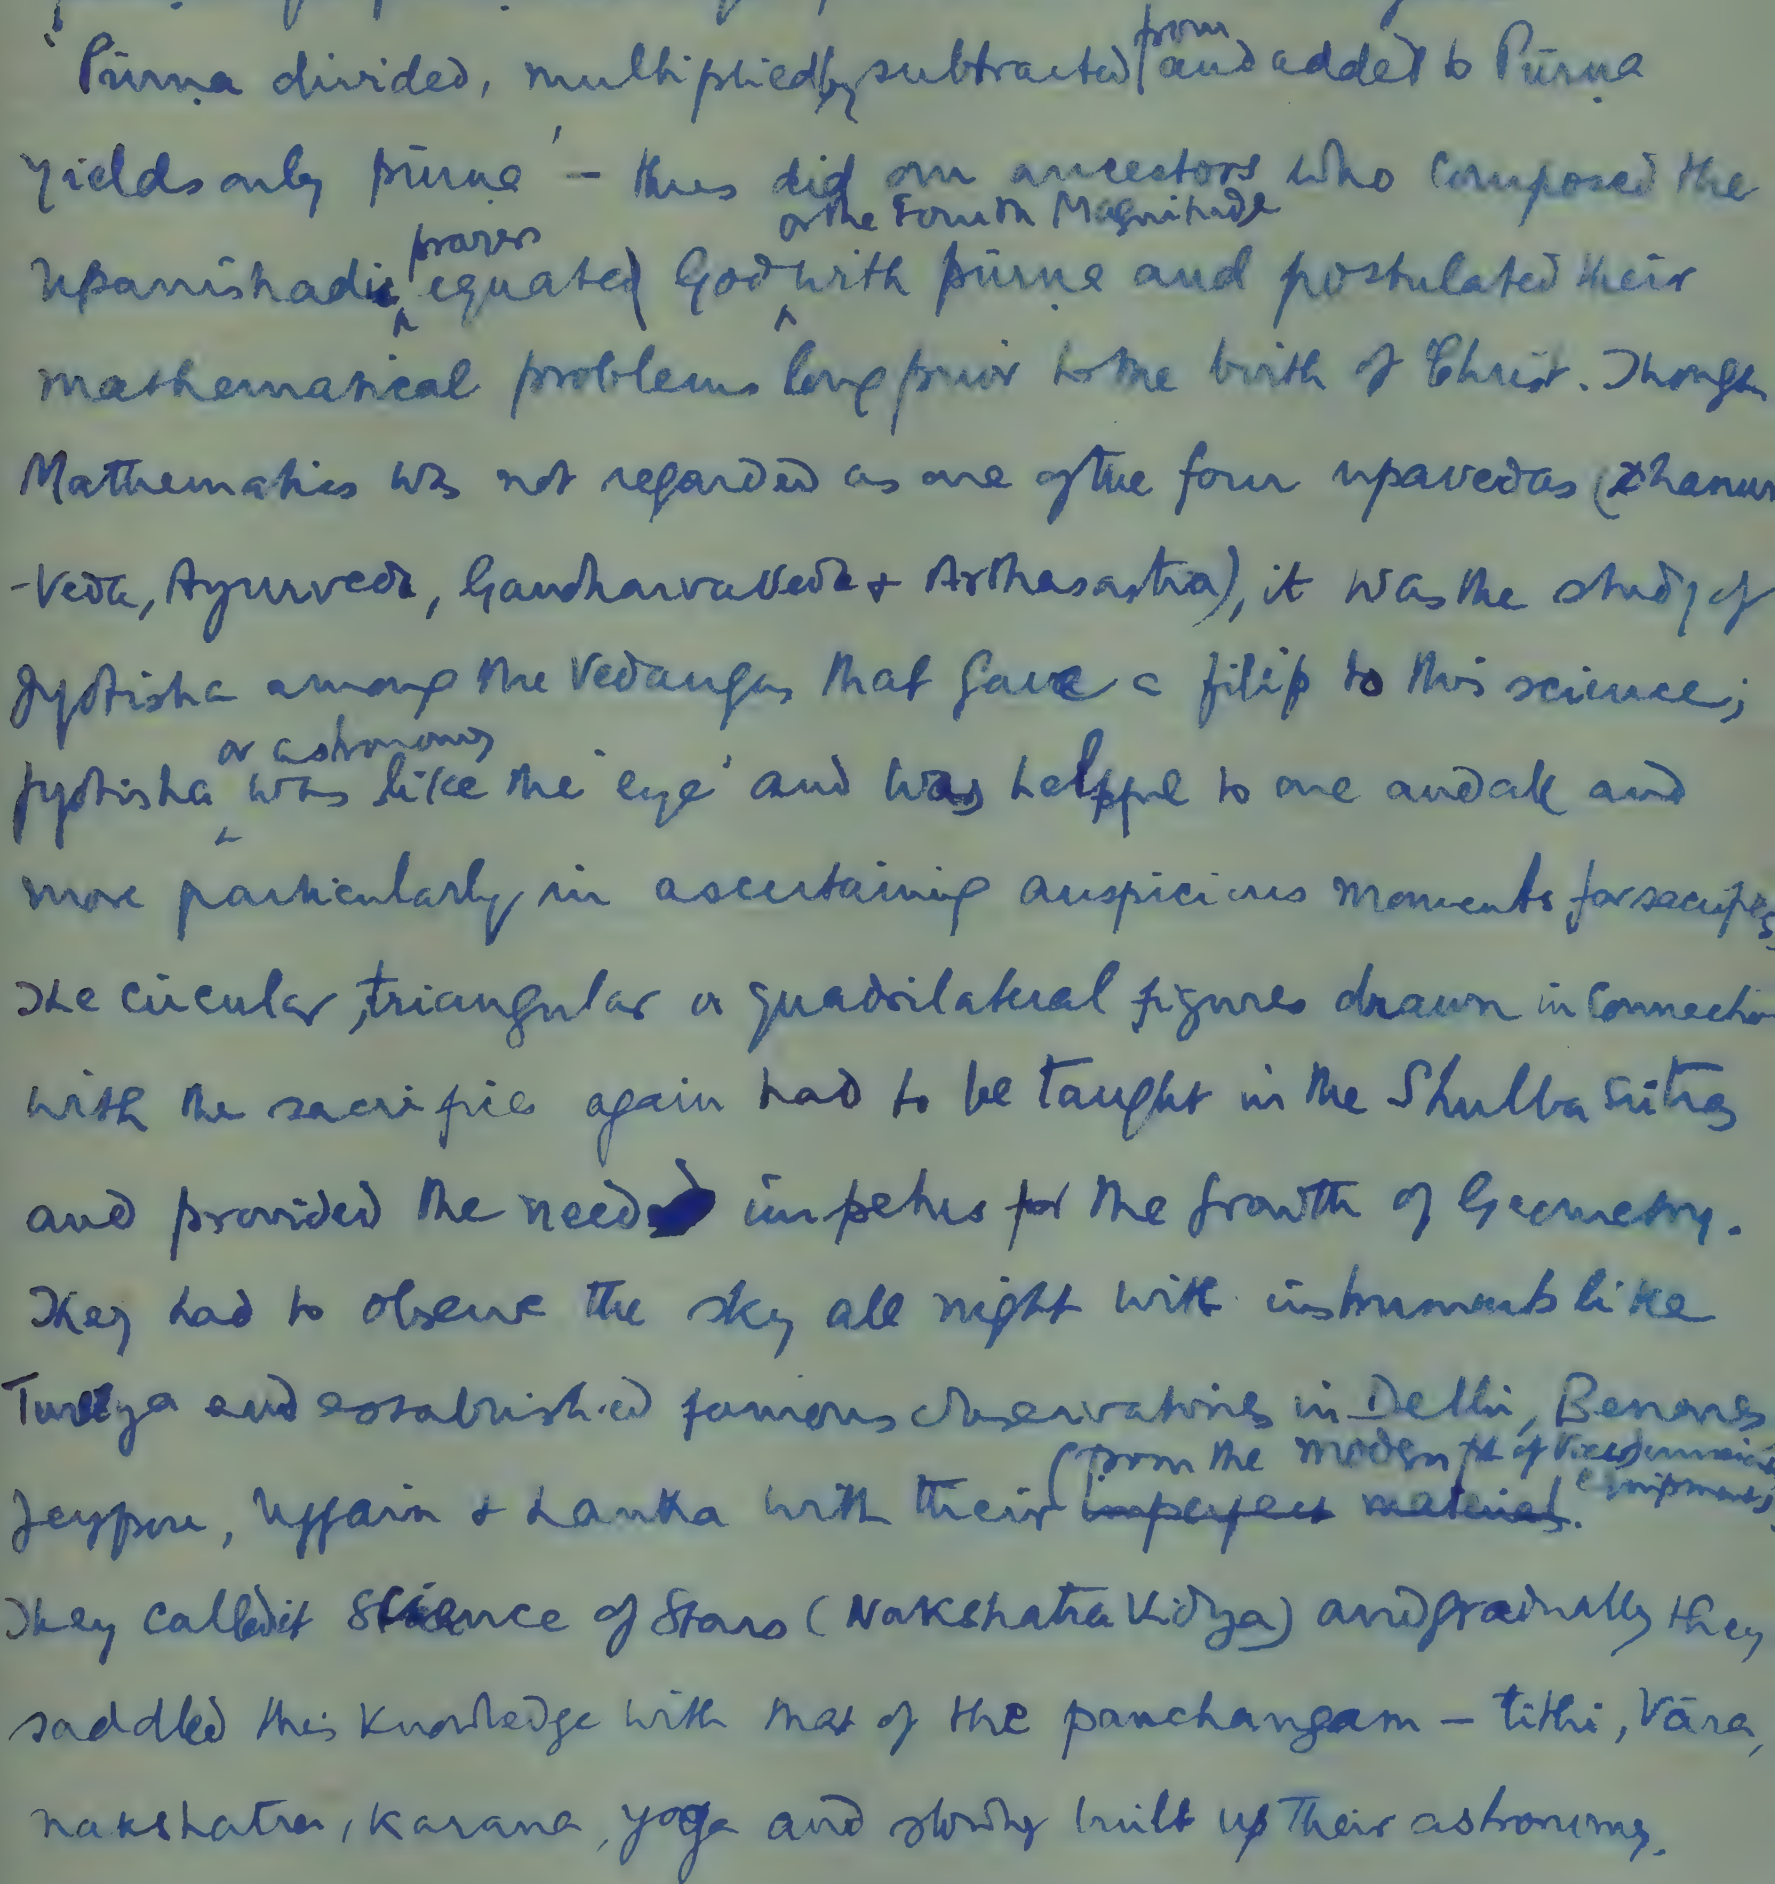 'Pūrṇa divided, multiplied by subtracted from and added to Pūrṇa
yields only pūrṇa' – thus did our ancestors who composed the
or the Fourth Magnitude
Upanishadic equated God with pūrṇa and postulated their
mathematical problems long prior to the birth of Christ. Though
Mathematics was not regarded as one of the four upavedas (Dhanur
-Veda, Ayurveda, Gandharvaveda & Arthasastra), it was the study of
Jyotisha among the Vedangas that gave a filip to this science;
or astronomy
jyotisha was like the 'eye' and was helpful to one and all and
more particularly in ascertaining auspicious moments for sacrifices,
The circular, triangular or quadrilateral figures drawn in connection
with the sacrifices again had to be taught in the Shulba sūtras
and provided the need impetus for the growth of Geometry.
They had to observe the sky all night with instruments like
Turiya and established famous observatories in Delhi, Benares
(from the modern pt of view) equipments,
Jeypore, Ujjain & Lanka with their imperfect materials.
They called it Science of Stars (Nakshatra Vidya) and gradually they
saddled this knowledge with that of the panchangam – tithi, Vāra,
nakshatra, karana, yoga and slowly built up their astronomy.